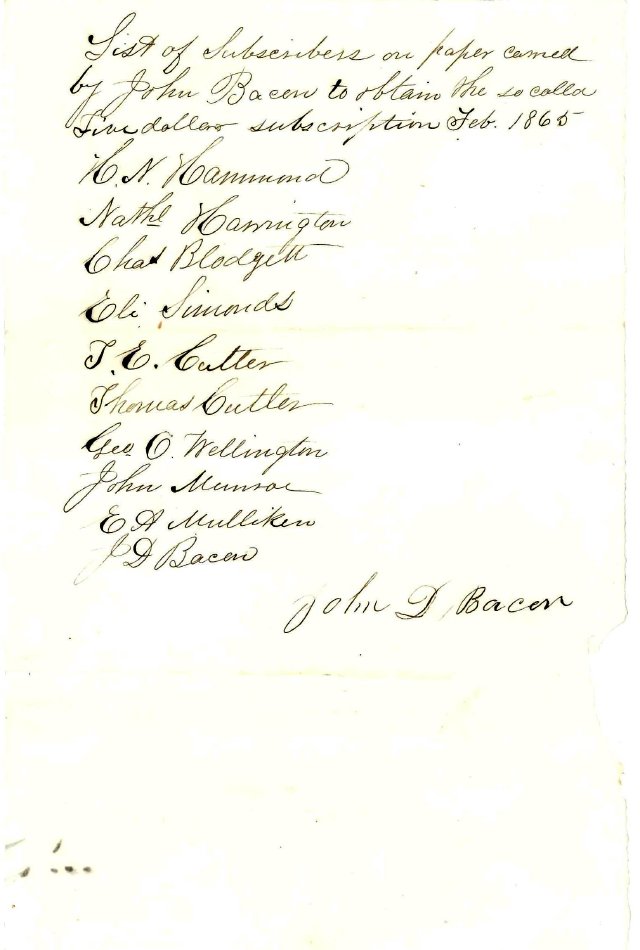 List of Subscribers on paper carried
by John Bacon to obtain the so calld
Five dollar subscription Feb. 1865
H. N. Hammond
Nathl Harrington
Chas Blodgett
Eli Simonds
T. E. Cutler
Thomas Cutler
Geo O. Wellington
John Munroe
E A Mulliken
J D Bacon
John D Bacon